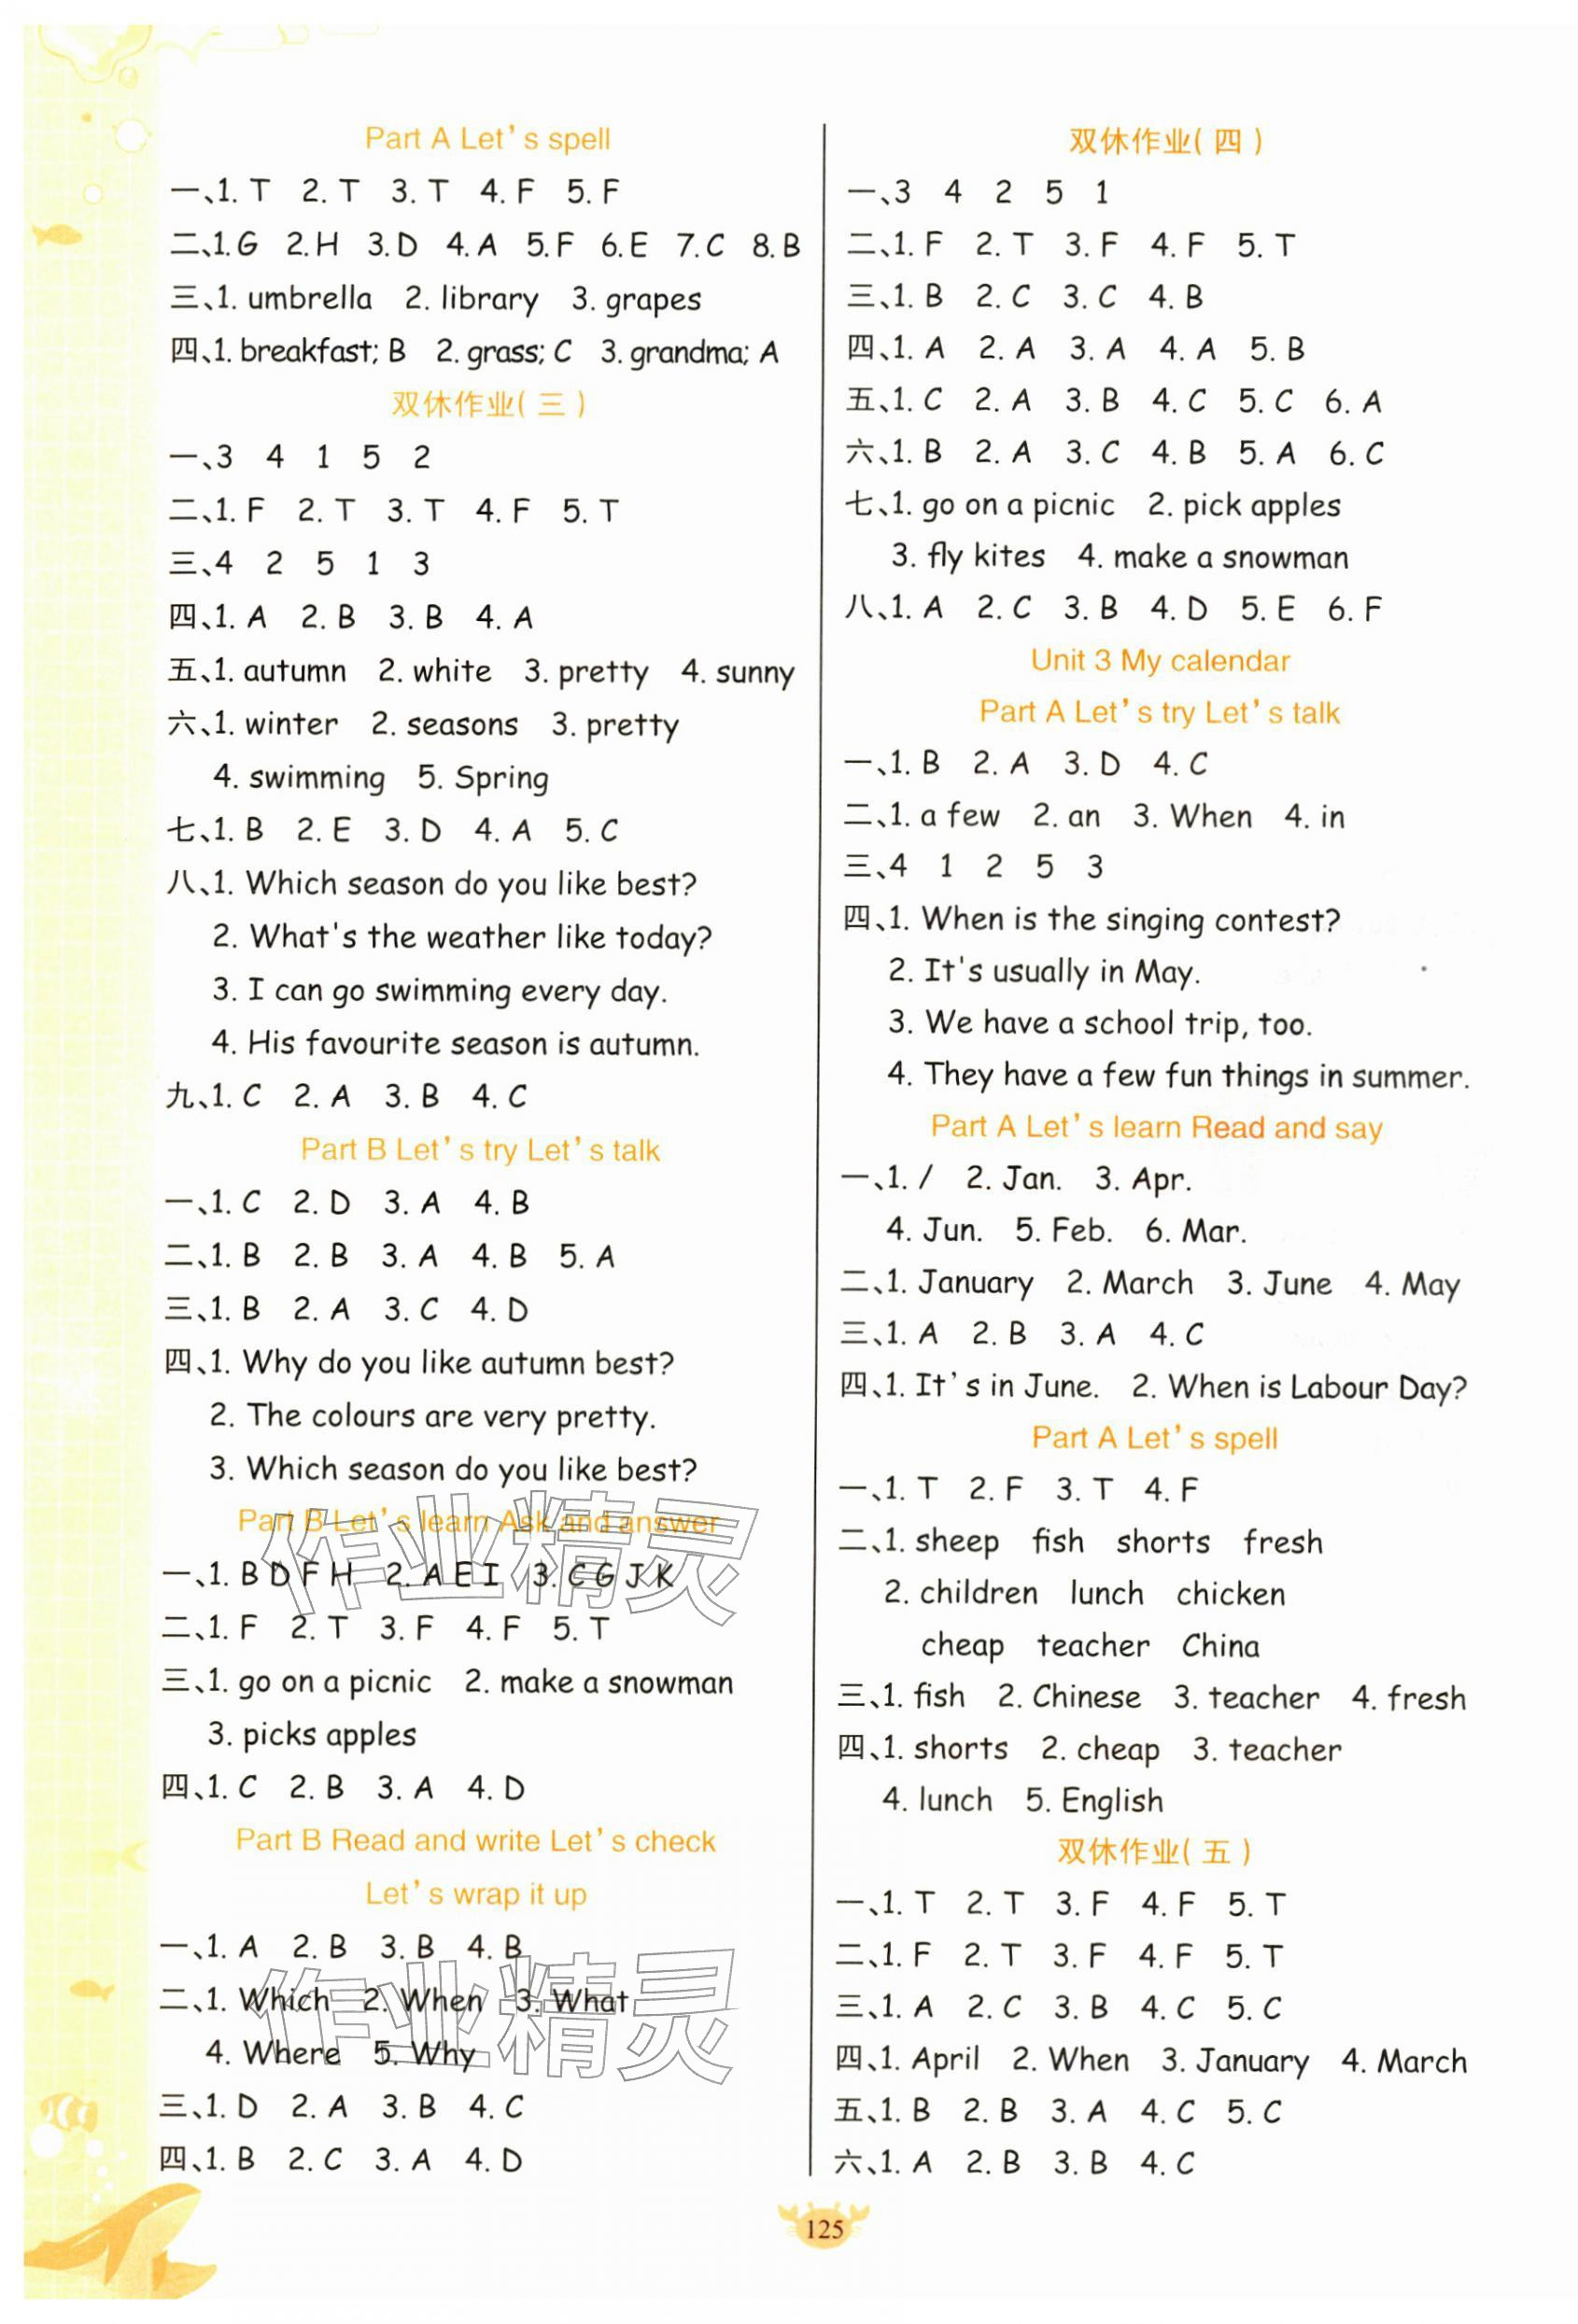 Part A Let's spell
一、1. T 2. T 3. T 4. F 5. F
二、1. G 2. H 3. D 4. A 5. F 6. E 7. C 8. B
三、1. umbrella 2. library 3. grapes
四、1. breakfast; B 2. grass; C 3. grandma; A
双休作业(三)
一、3 4 1 5 2
二、1. F 2. T 3. T 4. F 5. T
三、4 2 5 1 3
四、1. A 2. B 3. B 4. A
五、1. autumn 2. white 3. pretty 4. sunny
六、1. winter 2. seasons 3. pretty
4. swimming 5. Spring
七、1. B 2. E 3. D 4. A 5. C
八、1. Which season do you like best?
2. What's the weather like today?
3. I can go swimming every day.
4. His favourite season is autumn.
九、1. C 2. A 3. B 4. C
Part B Let's try Let's talk
一、1. C 2. D 3. A 4. B
二、1. B 2. B 3. A 4. B 5. A
三、1. B 2. A 3. C 4. D
四、1. Why do you like autumn best?
2. The colours are very pretty.
3. Which season do you like best?
Part B Let's learn Ask and answer
一、1. B D F H 2. A E I 3. C G J K
二、1. F 2. T 3. F 4. F 5. T
三、1. go on a picnic 2. make a snowman
3. picks apples
四、1. C 2. B 3. A 4. D
Part B Read and write Let's check
Let's wrap it up
一、1. A 2. B 3. B 4. B
二、1. Which 2. When 3. What
4. Where 5. Why
三、1. D 2. A 3. B 4. C
四、1. B 2. C 3. A 4. D
作业精灵
作业精灵
双休作业(四)
一、3 4 2 5 1
二、1. F 2. T 3. F 4. F 5. T
三、1. B 2. C 3. C 4. B
四、1. A 2. A 3. A 4. A 5. B
五、1. C 2. A 3. B 4. C 5. C 6. A
六、1. B 2. A 3. C 4. B 5. A 6. C
七、1. go on a picnic 2. pick apples
3. fly kites 4. make a snowman
八、1. A 2. C 3. B 4. D 5. E 6. F
Unit 3 My calendar
Part A Let's try Let's talk
一、1. B 2. A 3. D 4. C
二、1. a few 2. an 3. When 4. in
三、4 1 2 5 3
四、1. When is the singing contest?
2. It's usually in May.
3. We have a school trip, too.
4. They have a few fun things in summer.
Part A Let's learn Read and say
一、1. / 2. Jan. 3. Apr.
4. Jun. 5. Feb. 6. Mar.
二、1. January 2. March 3. June 4. May
三、1. A 2. B 3. A 4. C
四、1. It's in June. 2. When is Labour Day?
Part A Let's spell
一、1. T 2. F 3. T 4. F
二、1. sheep fish shorts fresh
2. children lunch chicken
cheap teacher China
三、1. fish 2. Chinese 3. teacher 4. fresh
四、1. shorts 2. cheap 3. teacher
4. lunch 5. English
双休作业(五)
一、1. T 2. T 3. F 4. F 5. T
二、1. F 2. T 3. F 4. F 5. T
三、1. A 2. C 3. B 4. C 5. C
四、1. April 2. When 3. January 4. March
五、1. B 2. B 3. A 4. C 5. C
六、1. A 2. B 3. B 4. C
125